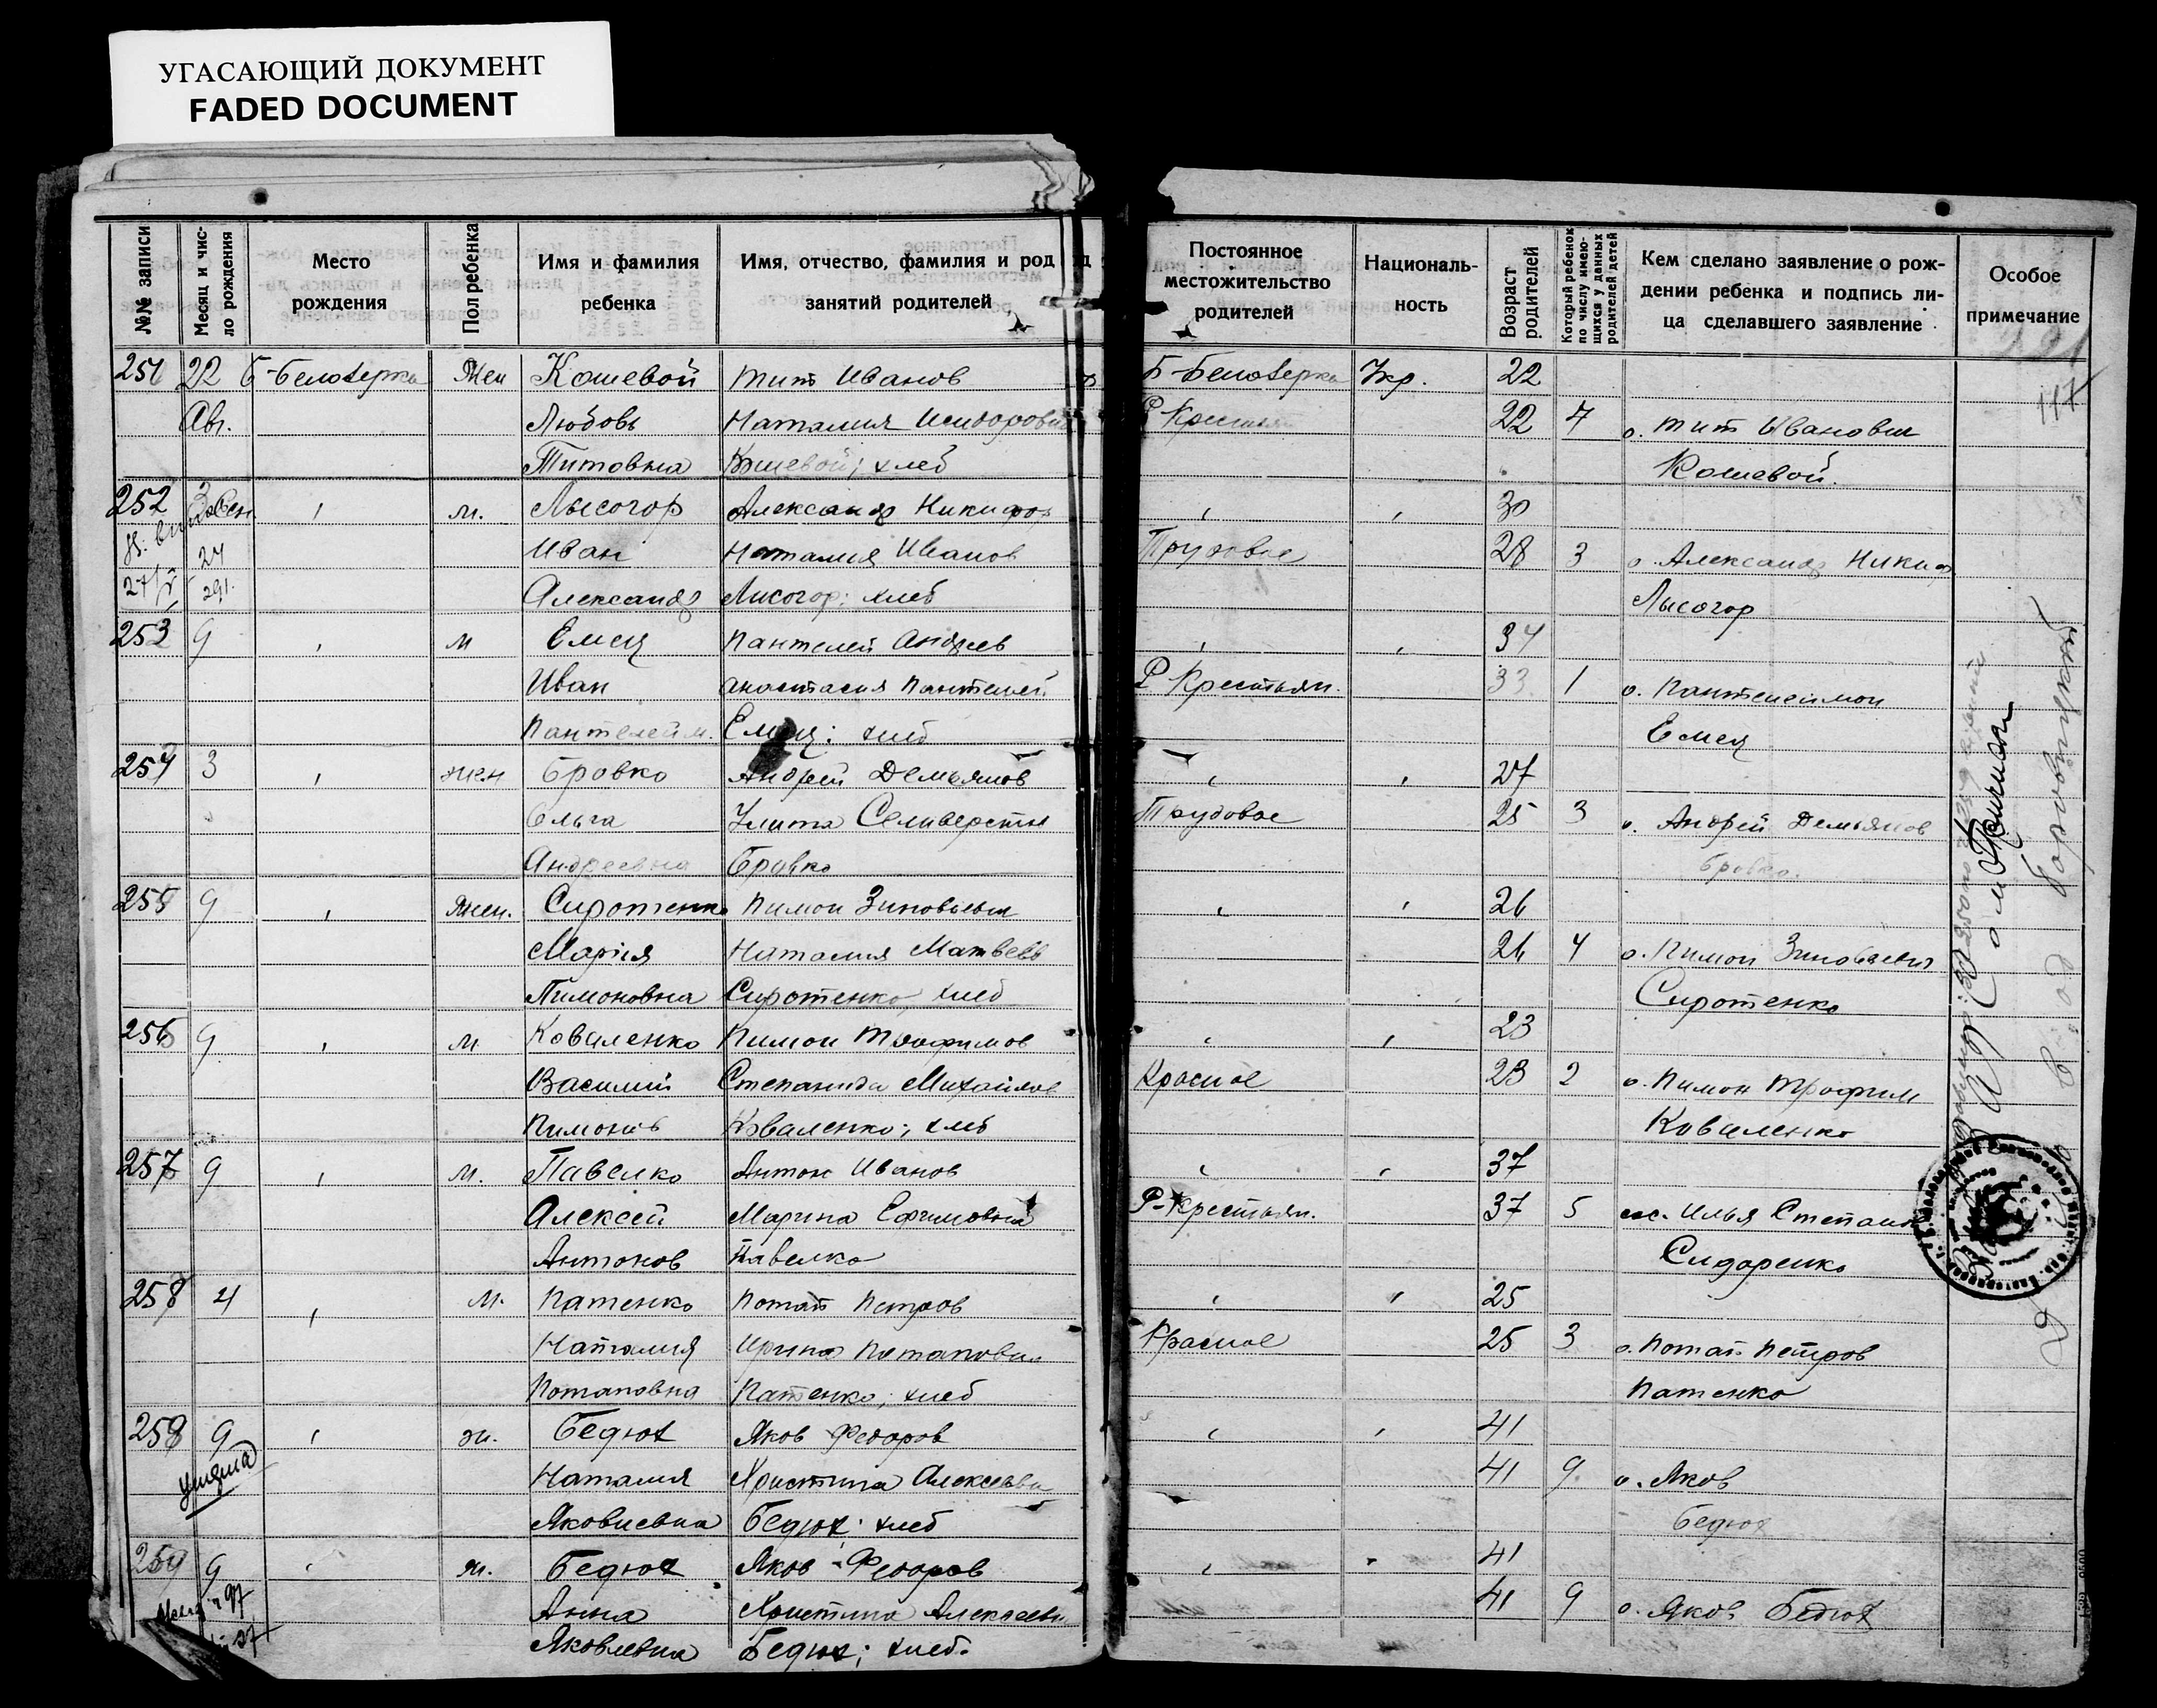 УГАСАЮЩИЙ ДОКУМЕНТ
FADED DOCUMENT
№№ записи
Месяц и чис-
ло рождения
Место
рождения
Пол ребенка
Имя и фамилия
ребенка
Имя, отчество, фамилия и род
занятий родителей
Постоянное
местожительство
родителей
Националь-
ность
Возраст
родителей
Который ребенок
по числу имею-
щихся у данных
родителей детей
Кем сделано заявление о рож-
дении ребенка и подпись ли-
ца сделавшего заявление
Особое
примечание
117
251 22 Б-Белозерка Жен Кошевой Тит Иванов Б-Белозерка Укр. 22
Авг. Любовь Наталия Исидоровна Р Крестьян 22 7 о. Тит Иванович
Титовна Кошевой; хлеб Кошевой.
252 м. Лысогор Александр Никифор 30
24 Иван Наталия Иванов Трудовое 28 3 о. Александр Никиф.
291. Александр Лисогор; хлеб Лысогор
253 9 м Емец Пантелей Андреев 34
Иван Анастасия Пантелей Р Крестьян. 33 1 о. Пантелеимон
Пантелейм. Емец; хлеб Емец
254 3 жен Бровко Андрей Демьянов 27
Ольга Улита Селиверстов Трудовое 25 3 о. Андрей Демьянов
Андреевна Бровко Бровко.
255 9 Жен. Сиротенко Пимон Зиновьевич 26
Марія Наталия Матвеев 26 4 о. Пимон Зиновьевич
Пимоновна Сиротенко, хлеб Сиротенко
256 9 м Коваленко Пимон Трофимов 23
Василий Степанида Михайлов Красное 23 2 о. Пимон Трофим
Пимонов Коваленко; хлеб Коваленко
257 9 м. Павелко Антон Иванов 37
Алексей Марина Ефимовна Р-Крестьян. 37 5 Илья Степанов
Антонов Павелко Сидоренко
258 4 м. Патенко Потап Петров 25
Наталия Ирина Потаповна Красное 25 3 о. Потап Петров
Потаповна Патенко; хлеб Патенко
258 9 ж. Бедюх Яков Федоров 41
умерла Наталия Христина Алексеевн 41 9 о. Яков
Яковлевна Бедюх; хлеб Бедюх
259 9 ж. Бедюх Яков Федоров 41
Анна Христина Алексеевн 41 9 о. Яков Бедюх
Яковлевна Бедюх; хлеб.